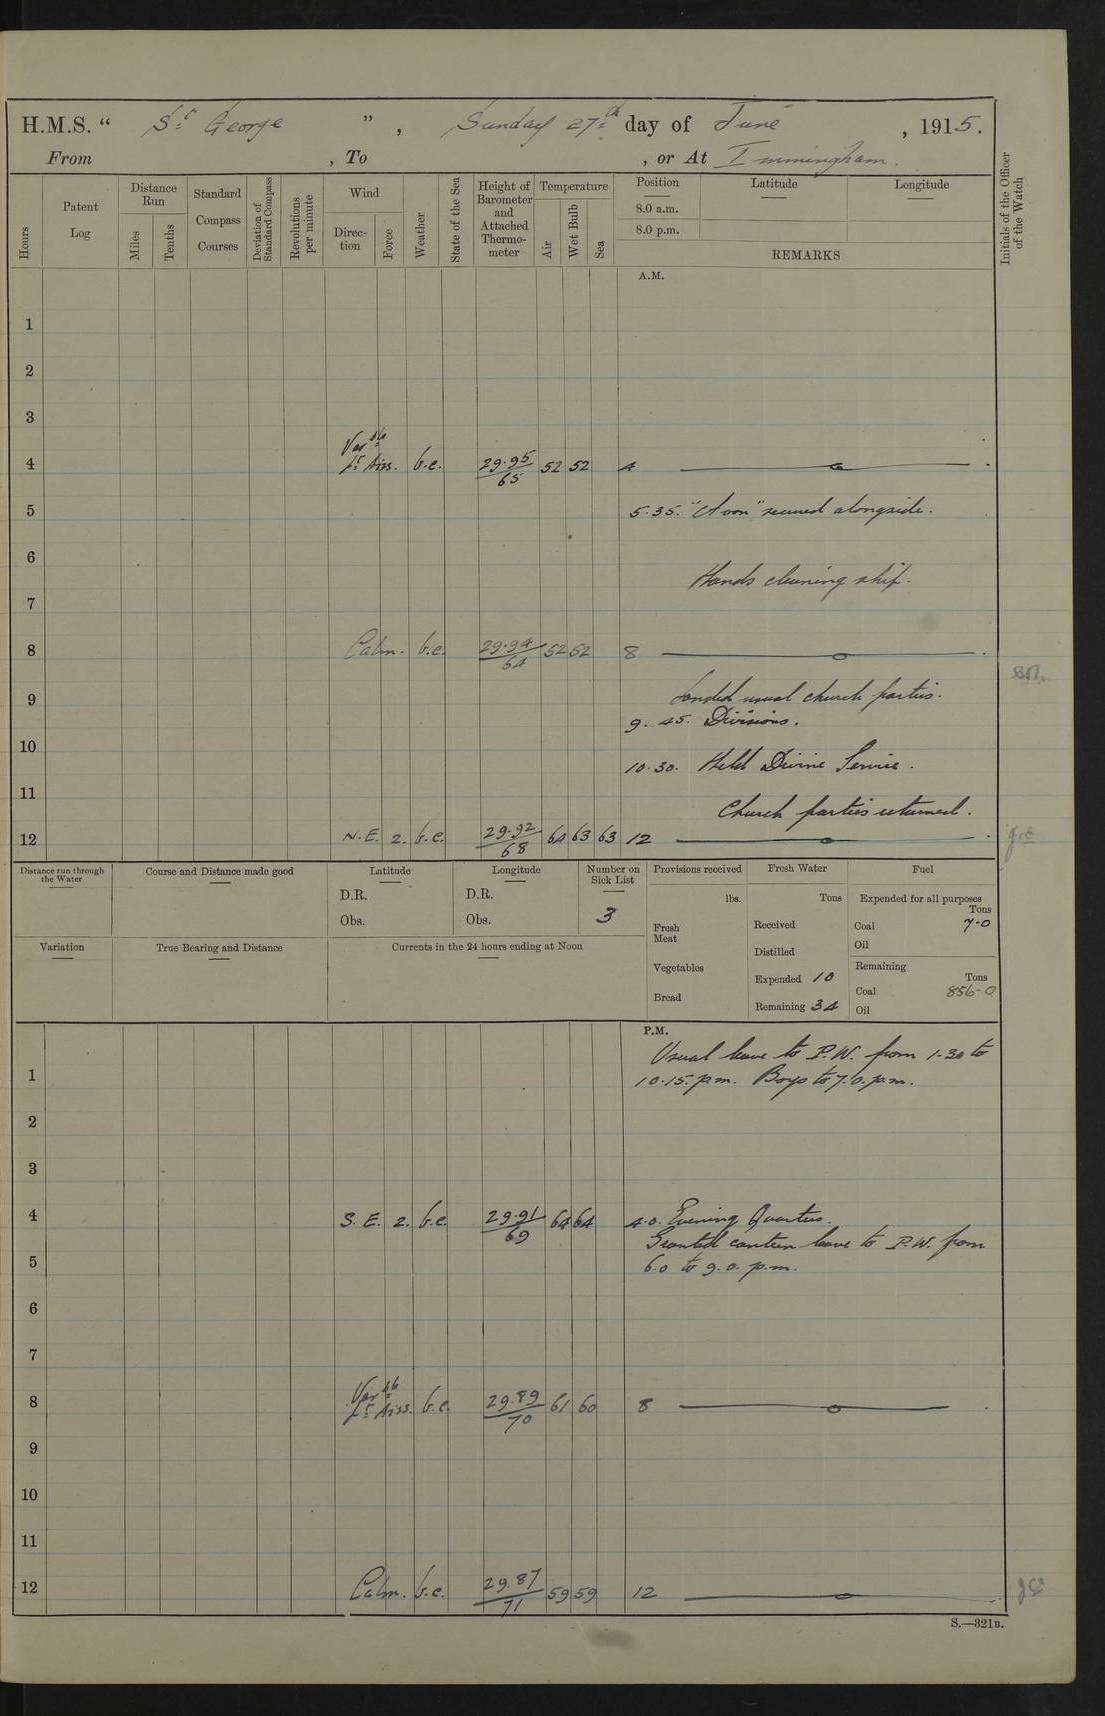 H.M.S. “ St George ” , Sunday 27th day of June , 1915.
From , To , or At Immingham.
Hours
Patent Log
Distance Run
Miles
Tenths
Standard Compass Courses
Deviation of Standard Compass
Revolutions per minute
Wind
Direc-tion
Force
Weather
State of the Sea
Height of Barometer and Attached Thermo-meter
Temperature
Air
Wet Bulb
Sea
Position
Latitude
Longitude
8.0 a.m.
8.0 p.m.
REMARKS
Initials of the Officer of the Watch
A.M.
1
2
3
Varble
4 Lt Airs. b.c. 29.95/65 52 52 4
5 5.35. secured alongside.
6
Hands cleaning ship.
7
8 Calm. b.c. 29.94/64 52 52 8
Landed usual church parties.
9
9.45. Divisions.
10
10.30. Held Divine Service.
11
Church parties returned.
12 N.E. 2. b.c. 29.92/68 64 63 63 12
Distance run through the Water
Course and Distance made good
Latitude
D.R.
Obs.
Longitude
D.R.
Obs.
Number on Sick List
3
Provisions received
lbs.
Fresh Meat
Vegetables
Bread
Fresh Water
Tons
Received
Distilled
Expended 10
Remaining 34
Fuel
Expended for all purposes
Tons
Coal 7.0
Oil
Remaining
Tons
Coal 856-0
Oil
Variation
True Bearing and Distance
Currents in the 24 hours ending at Noon
P.M.
Usual leave to P.W. from 1.30 to
1 10.15. p.m. Boys to 7.0. p.m.
2
3
4 S.E. 2. b.c. 29.91/69 64 64 4.0. Evening Quarters.
Granted canteen leave to P.W. from
5 6.0 to 9.0. p.m.
6
7
Varble
8 Lt Airs. b.c. 29.89/70 61 60 8
9
10
11
12 Calm. b.c. 29.87/71 59 59 12
S.—321B.